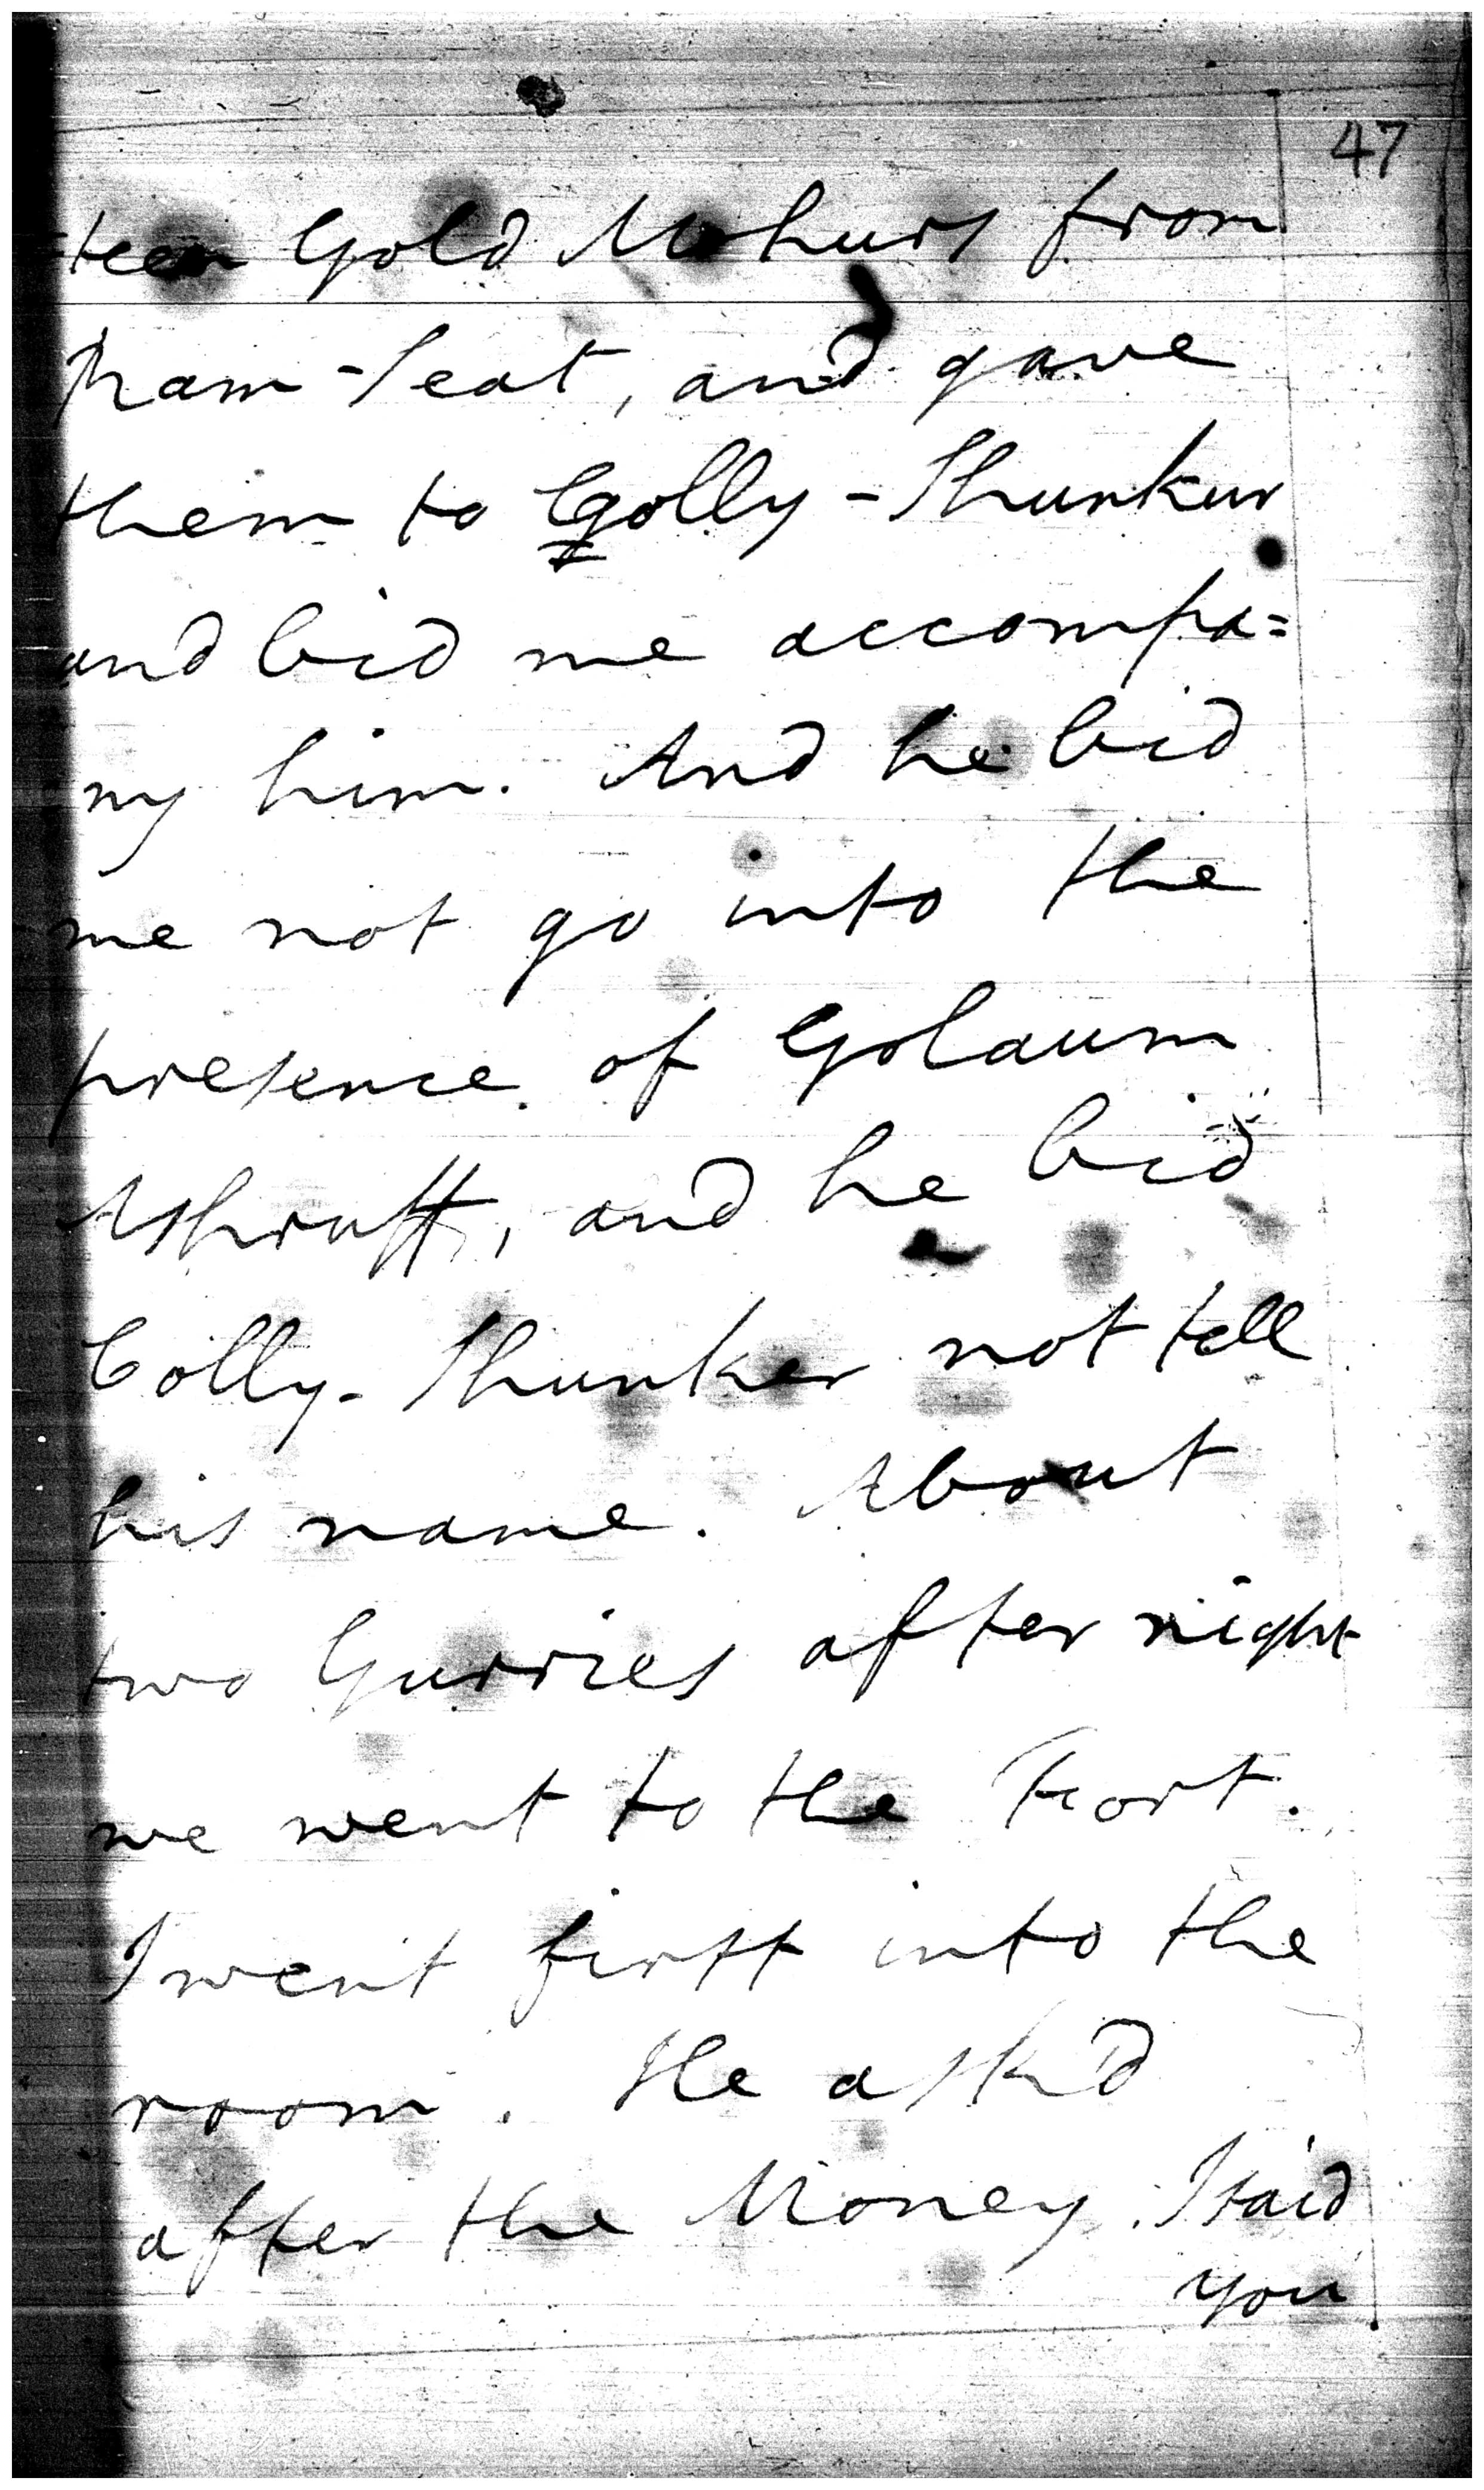 47
teen Gold Mohurs from
Ram-Seat, and gave
them to Golly-Shunkur
and bid me accompa=
ny him. And he bid
me not go into the
presence of Golaum
Ashruff, and he bid
Colly-Shunker not tell
his name. About
two Gurries after night
we went to the Fort.
I went first into the
room. He ask'd
after the Money. I said
you